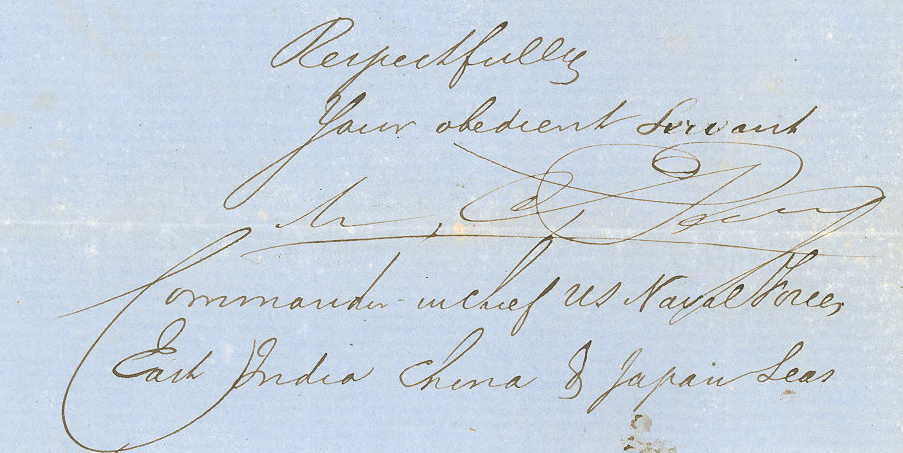 Respectfully
Your obedient Servant
M. C. Perry
Commander in Chief US Naval Forces
East India China & Japan Seas